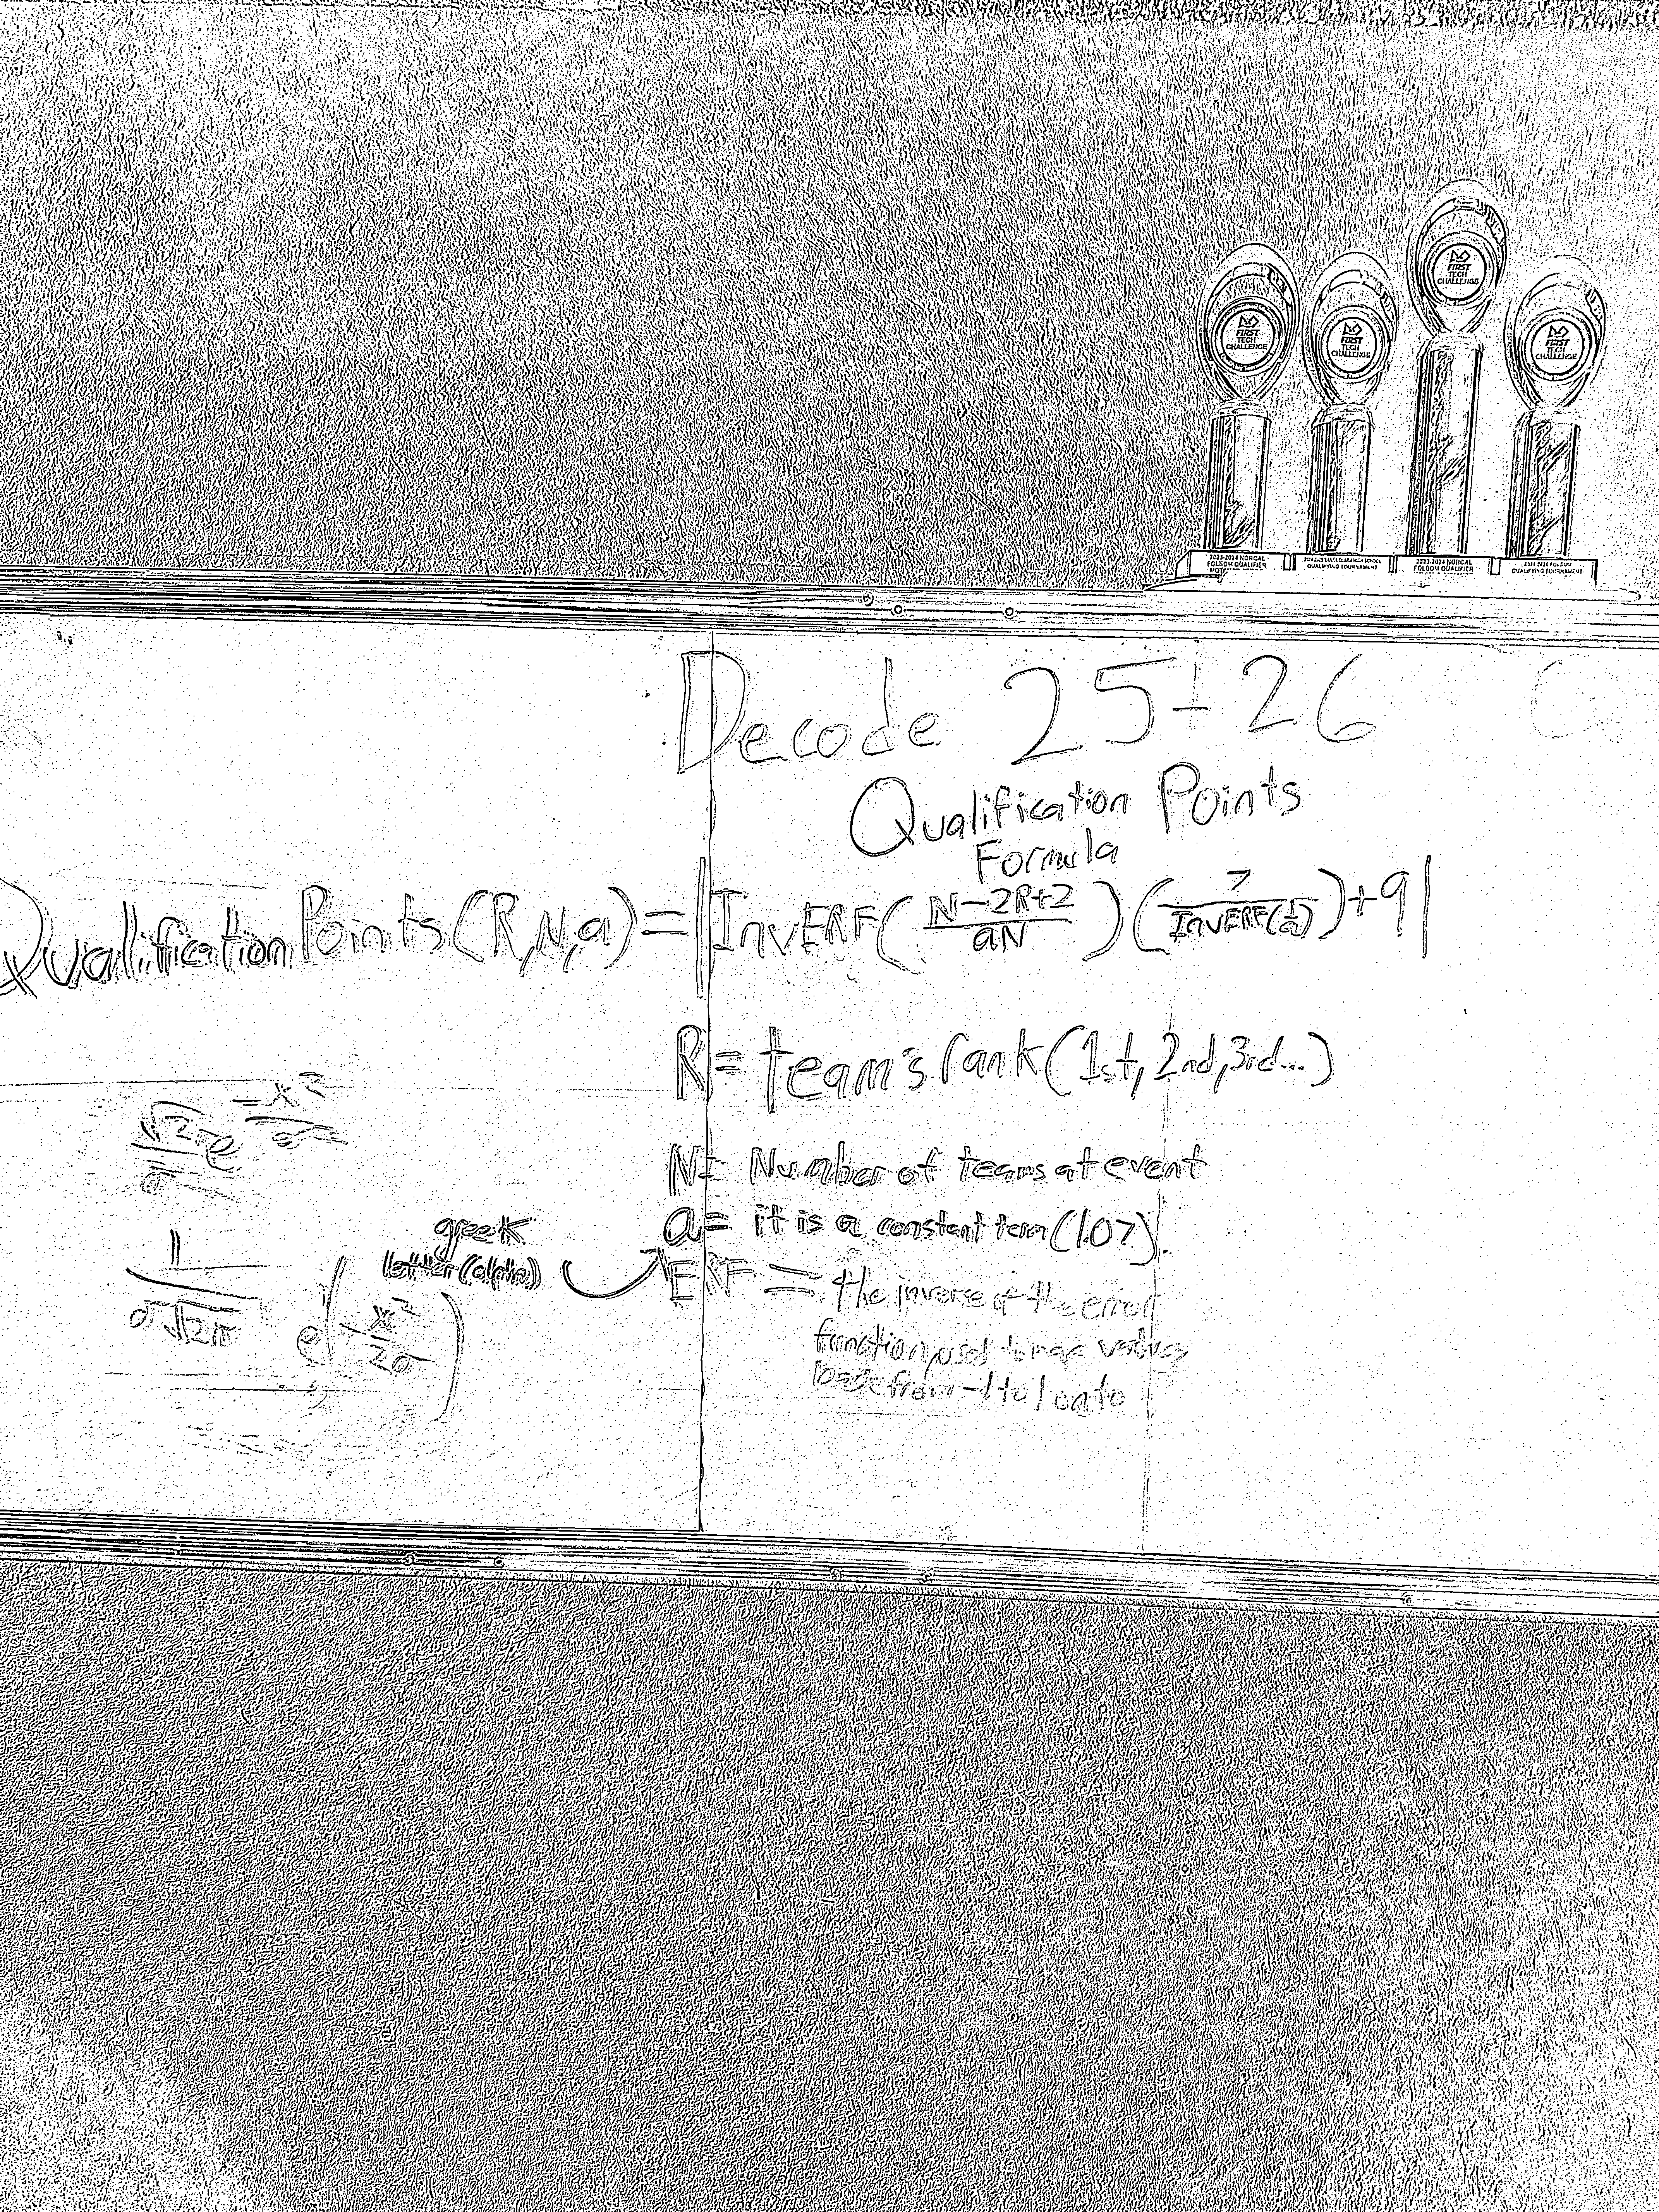 FIRST
TECH
CHALLENGE
FIRST
TECH
CHALLENGE
FIRST
TECH
CHALLENGE
FIRST
TECH
CHALLENGE
2023-2024 NORCAL
FOLSOM QUALIFIER
HIGH SCHOOL
QUALIFYING TOURNAMENT
2023-2024 NORCAL
FOLSOM QUALIFIER
FOLSOM
QUALIFYING TOURNAMENT
Decode 25-26
Qualification Points
Formula
QualificationPoints(R,N,a)=|InvERF((N-2R+2)/(aN))(7/InvERF(1/a))+9|
R= team's rank (1st, 2nd, 3rd...)
N= Number of teams at event
a= it is a constant term (1.07)
greek
letter (alpha)
ERF = the inverse of the error
function, used to map values
back from -1 to 1 onto
1/(σ√2π) e^(-x²/2σ)